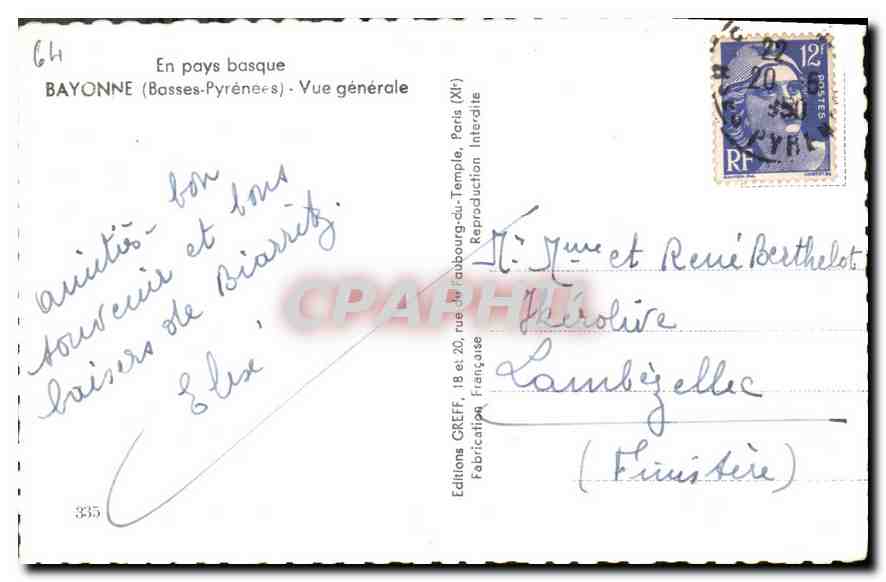 64
En pays basque
BAYONNE (Basses-Pyrénées) - Vue générale
amitiés - bon
souvenir et bons
baisers de Biarritz.
335
Editions GREFF, 18 et 20, rue du Faubourg-du-Temple, Paris (XIe)
Fabrication Française Reproduction Interdite
12F
POSTES
RF
22
20 - 6
50
PYR
Mr. Mme et René Berthelot
Kérolive
Lambézellec
(Finistère)
CAPHILA